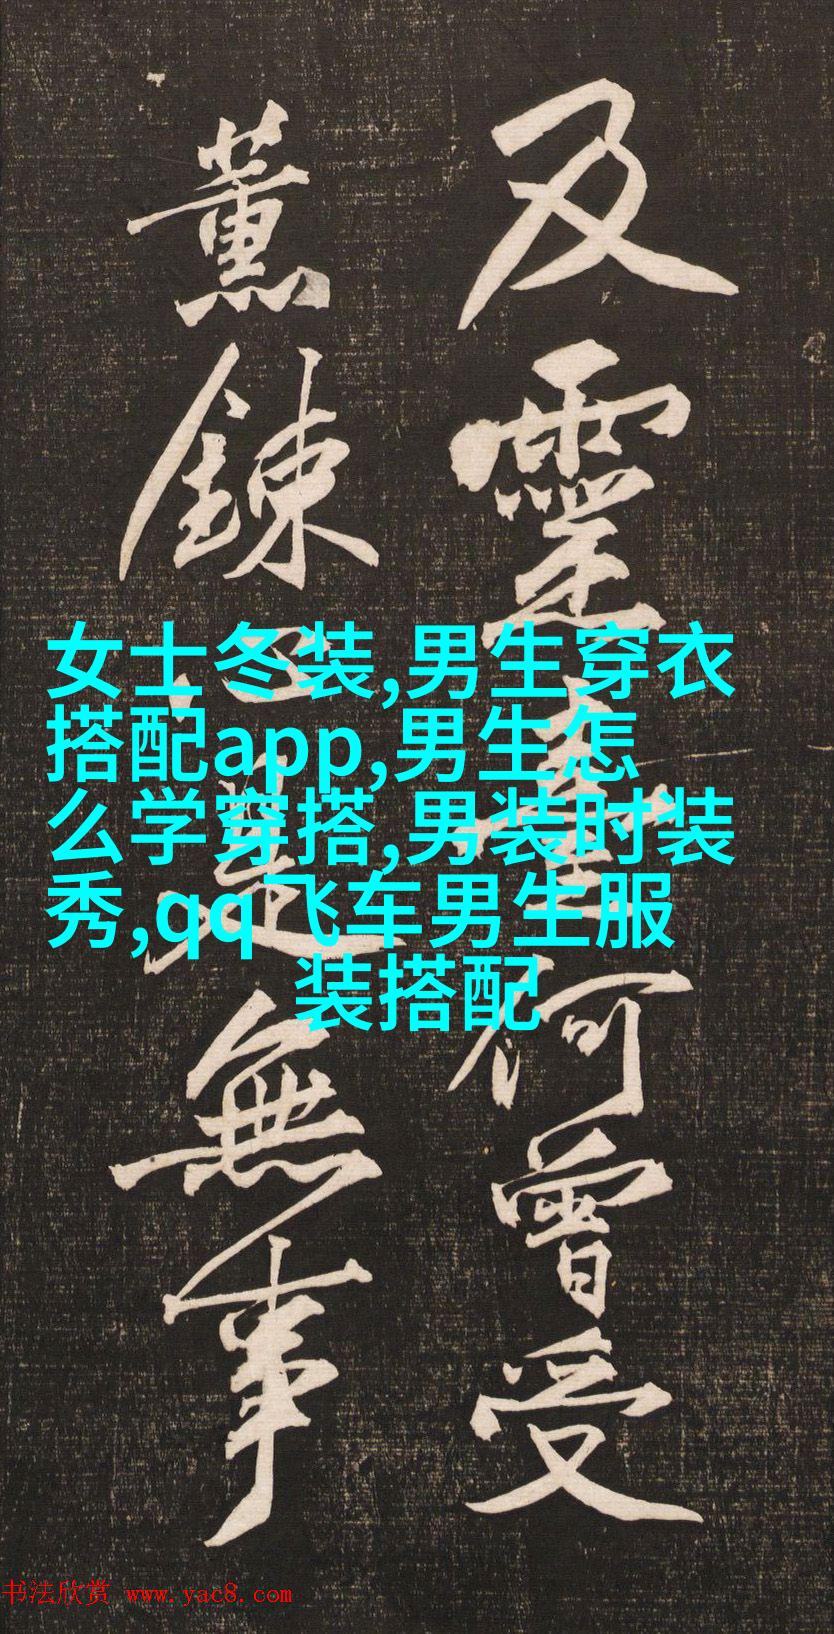 及靈臺何曾受
薰鍊心是無事
女士冬装,男生穿衣
搭配app,男生怎
么学穿搭,男装时装
秀,qq飞车男生服
装搭配
书法欣赏 www.yac8.com